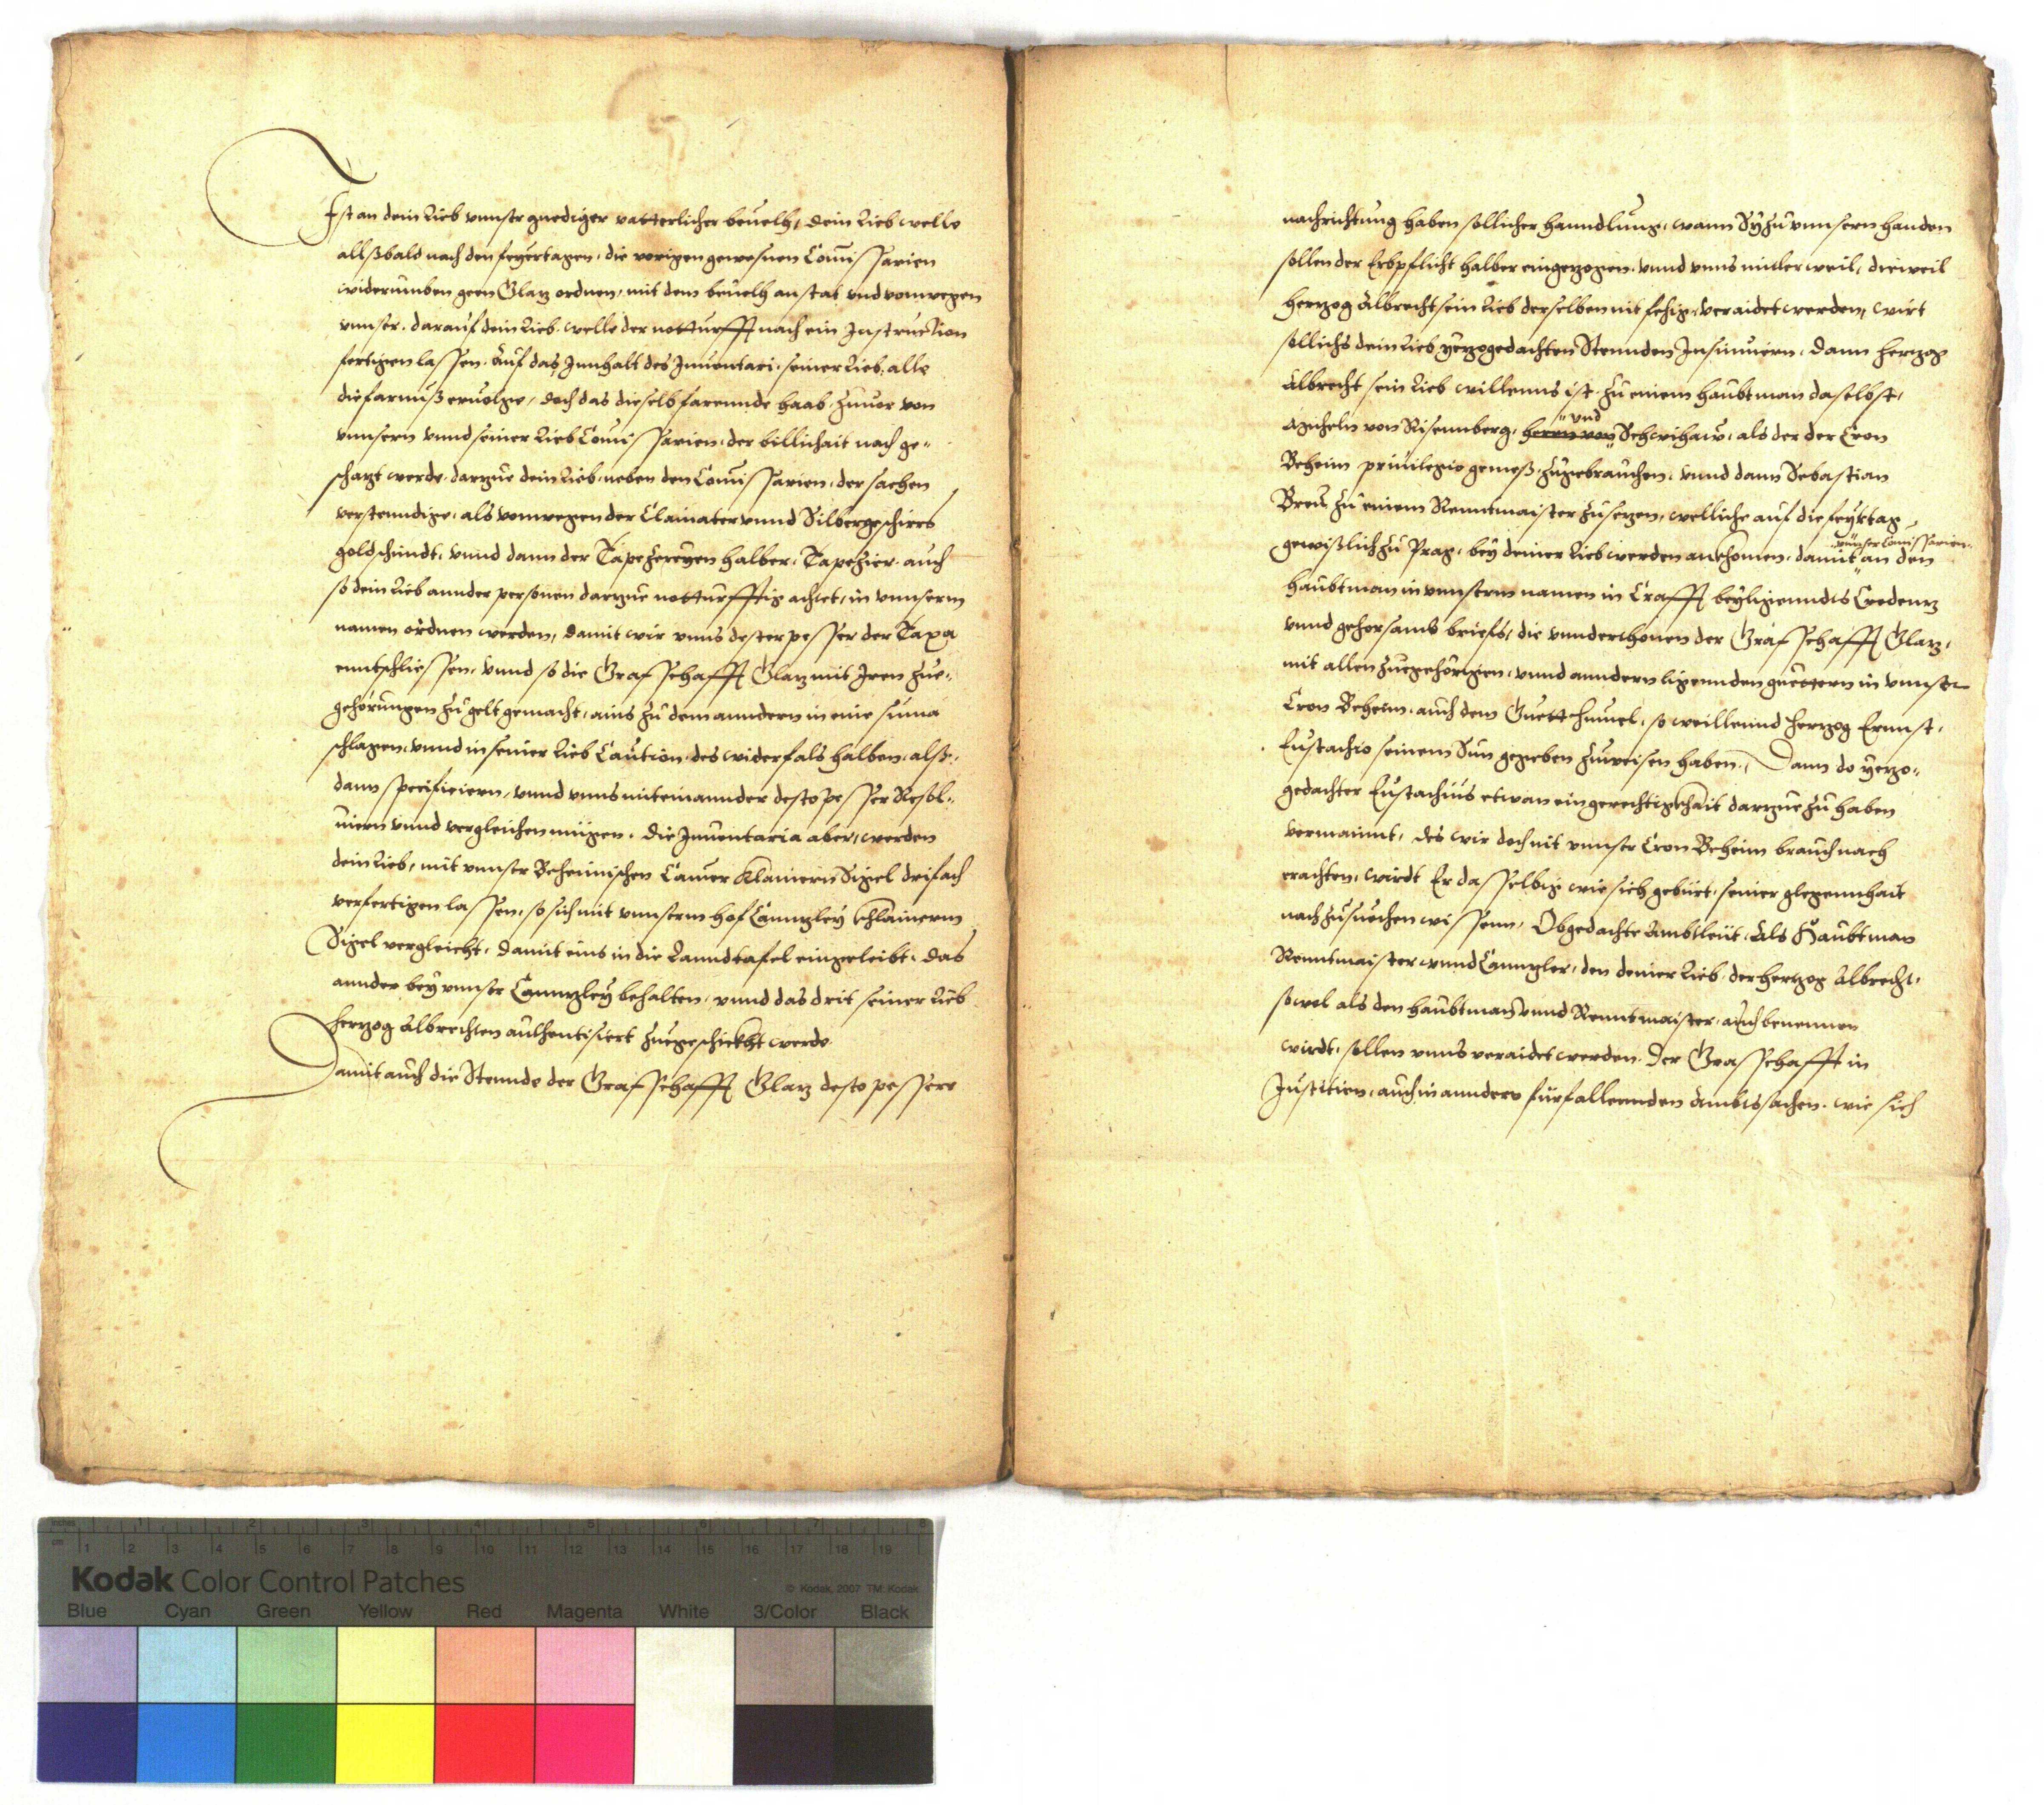 Ist an dein Lieb vnnser gnediger vatterlicher beuelh, dein Lieb welle
allßbald nach den feyertagen, die vorigen gewesnen Comissarien
widerumben geen Glaz ordnen, mit dem beuelh anstat vnd vonwegen
vnnser. darauf dein Lieb welle der notturfft nach ein Instruction
fertigen lassen. Auf das Innhalt des Inuentari, seiner Lieb, alle
die farnuß eruolge, doch das dieselb farennde haab, zuuor von
vnnsern vnnd seiner Lieb Comissarien, der billichait nach ge¬
schazt werde, darzue dein Lieb, neben den Comissarien, der sachen
verstenndige, als vonwegen der Clainater vnnd Silbergeschirrs
goldschmidt, vnnd dann der Tapezereyen halber, Tapezier, auch
so dein Lieb annder personen darzue notturfftig achtet, in vnnserm
namen ordnen werden, damit wir vnns dester pesser der Taxa
enntschliessen, vnnd so die Grafschafft Glaz mit Iren zue¬
gehörungen zu gelt gemacht, ains zu dem anndern in eine suma
schlagen, vnnd in seiner Lieb Caution, des widerfals halben, alß¬
dann specificiern, vnnd vnns miteinannder desto pesser Resol¬
uiern vnnd vergleichen mügen. Die Inuentaria aber, werden
dein Lieb, mit vnnser Behemischen Camer klainern Sigel drifach
verfertigen lassen, so sich mit vnnserm hof Canntzley khlainerm
Sigel vergleicht, damit eins in die Lanndtafel eingeleibt, das
annder bey vnnser Canntzley behalten, vnnd das drit seiner Lieb
Herzog Albrechten authentisiert zuegeschickht werde.
Damit auch die Stennde der Grafschafft Glaz desto pessere
nachrichtung haben sollicher hanndlung, wann Sy zu vnnsern handen
sollen der Erbpflicht halber eingezogen, vnnd vnns mitler weil, dieweil
Herzog Albrecht sein Lieb derselben nit fehig, veraidet werden, wirt
sollichs dein Lieb yetzgedachten Stennden Insinuiern, dann Herzog
Albrecht sein Lieb willenns ist, zu einem haubtman daselbst,
von Risennberg, herrn von und Schwihaw, als der der Cron
Beheim priuilegio gemeß, zugebrauchen, vnnd dann Sebastian
Breu zu einem Renntmaister zusetzen, welliche auf die feyrtag
gewißlich zu Prag, bey deiner Lieb werden ankhomen, damit vnnser Comissarien an den
haubtman in vnnserm namen in Crafft beyligenndts Credentz
vnnd gehorsamb briefs, die vnnderthonen der Grafschafft Glaz,
mit allen zuegehörigen, vnnd anndern ligennden guettern in vnnser
Cron Beheim, auch dem so weillennd Herzog Ernnst,
Eustachio seinem Sun gegeben zuweisen haben. Dann do yetzo¬
gedachter Eustachius etwan ein gerechtigkhait darzue zu haben
vermaint, des wir doch nit vnnser Cron Beheim brauch nach
erachten, wirdt Er dasselbig wie sich gebürt, seiner glegennhait
nach zusuechen wissenn. Obgedachte Ambtleüt, Als Haubtman
Renntmaister vnnd Canntzler, den deiner Lieb der Hertzog Albrecht,
sowol als den haubtman vnnd Renntmaister, auch benennen
wirdt, sollen vnns veraidet werden. Der Grasschafft in
Justitien, auch in anndern fürfallennden Ambtssachen, wie sich